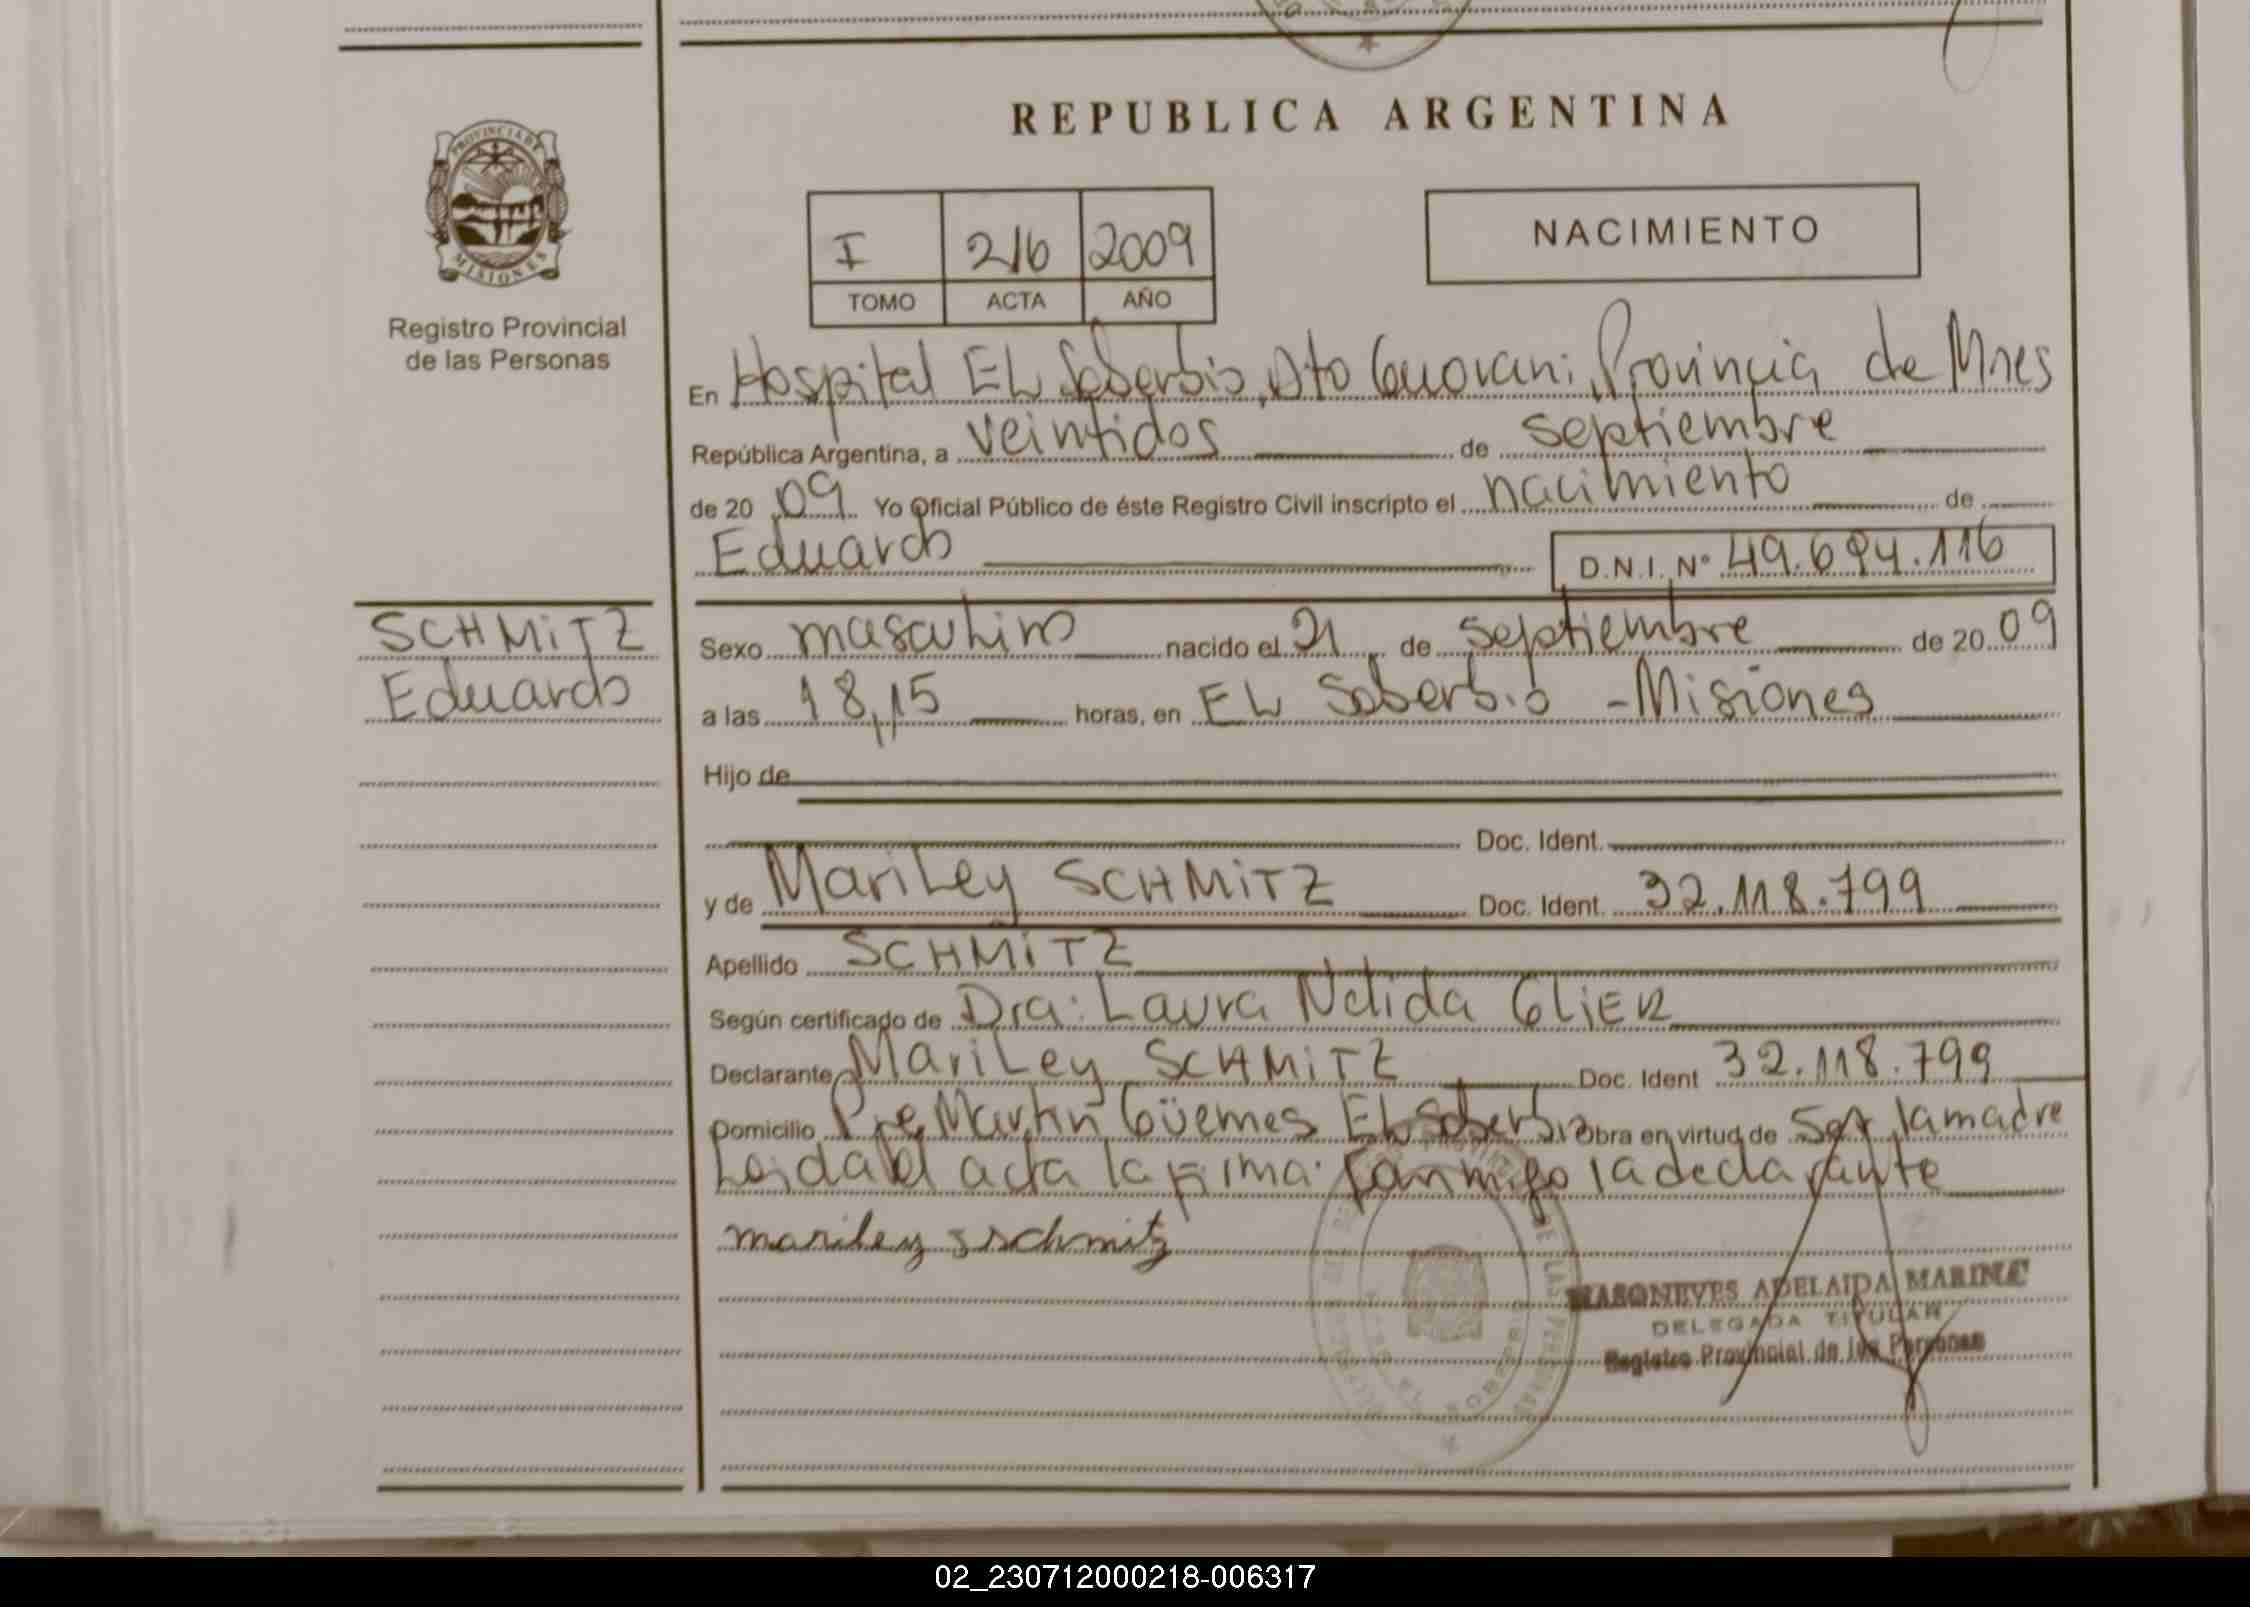 REPUBLICA ARGENTINA
PROVINCIA DE
MISIONES
Registro Provincial
de las Personas
I 216 2009
TOMO ACTA AÑO
NACIMIENTO
En Hospital EL Soberbio, Dto Guarani Provincia de Mnes
República Argentina, a veintidos de septiembre
de 20 09 Yo Oficial Público de éste Registro Civil inscripto el nacimiento de
Eduardo D.N.I. Nº 49.694.116
SCHMITZ
Eduardo
Sexo masculino nacido el 21 de septiembre de 20 09
a las 18,15 horas, en EL Soberbio - Misiones
Hijo de
Doc. Ident.
y de MariLey SCHMITZ Doc. Ident. 32.118.799
Apellido SCHMITZ
Según certificado de Dra: Laura Nelida GLIER
Declarante MariLey SCHMITZ Doc. Ident 32.118.799
Domicilio Pje Martin Güemes EL Soberbio Obra en virtud de Ser la madre
Leida el acta la Firma Conmigo la declarante
mariley schmitz
MASONEVES ADELAIDA MARINA
DELEGADA TITULAR
Registro Provincial de las Personas
02_230712000218-006317